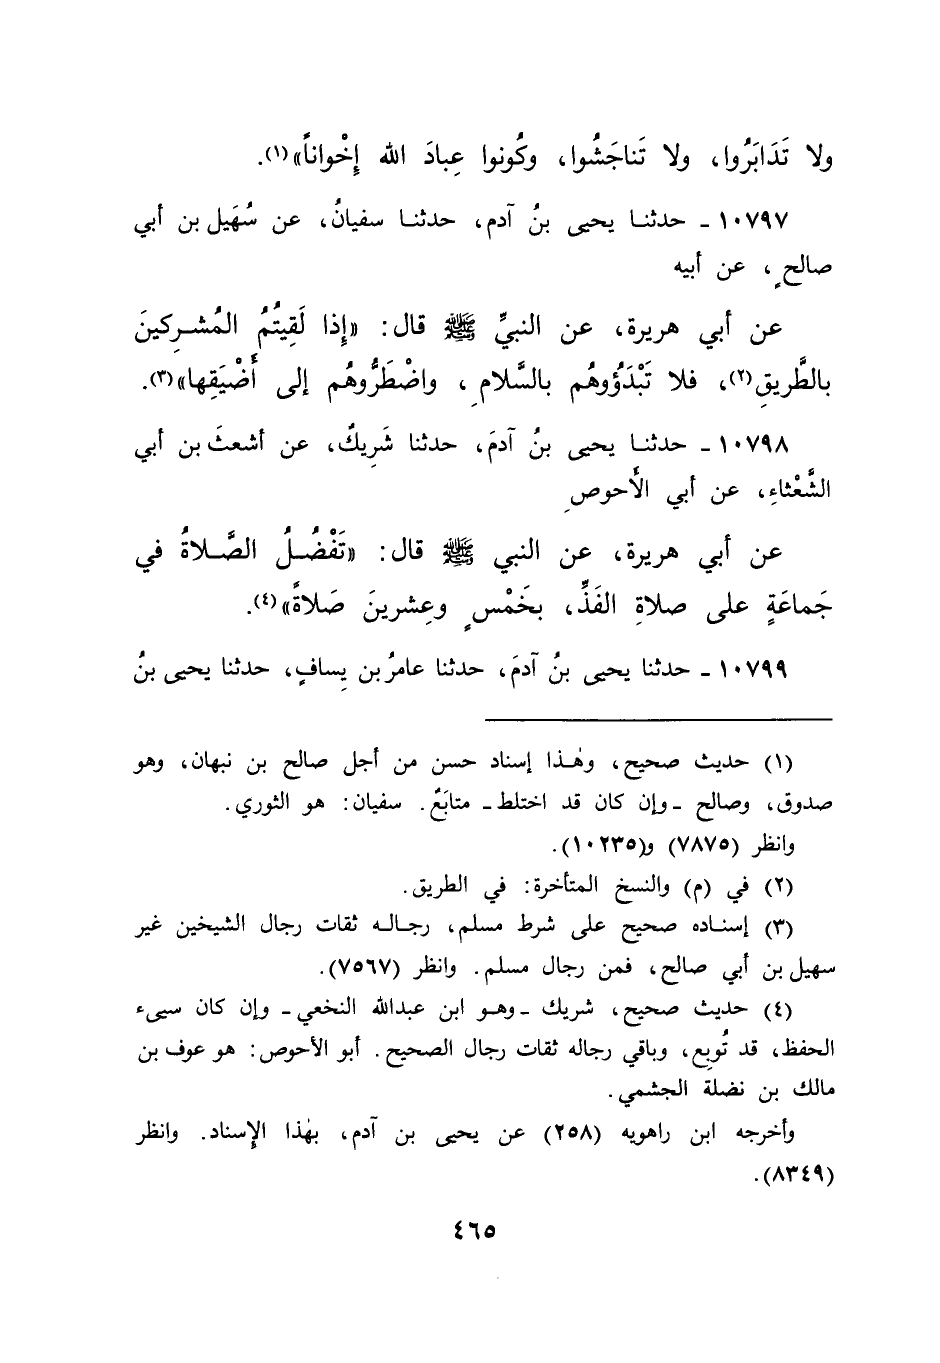 ولا تَدَابَرُوا، ولا تَناجَشُوا، وكُونوا عِبادَ الله إِخْواناً»(١).
١٠٧٩٧ ـ حدثنا يحيى بنُ آدم، حدثنا سفيانُ، عن سُهَيل بن أبي
صالحٍ، عن أبيه
عن أبي هريرة، عن النبيِّ ﷺ قال: «إِذا لَقِيتُمُ المُشرِكينَ
بالطَّريقِ(٢)، فلا تَبْدَؤُوهُم بالسَّلامِ، واضْطَرُّوهُم إلى أَضْيَقِها»(٣).
١٠٧٩٨ ـ حدثنا يحيى بنُ آدمَ، حدثنا شَرِيكٌ، عن أشعثَ بن أبي
الشَّعْثاءِ، عن أبي الأَحوصِ
عن أبي هريرة، عن النبي ﷺ قال: «تَفْضُلُ الصَّلاةُ في
جَماعَةٍ على صلاةِ الفَذِّ، بخَمْسٍ وعِشرينَ صَلاةً»(٤).
١٠٧٩٩ ـ حدثنا يحيى بنُ آدمَ، حدثنا عامرُ بن يِسافٍ، حدثنا يحيى بنُ
(١) حديث صحيح، وهٰذا إسناد حسن من أجل صالح بن نبهان، وهو
صدوق، وصالح ـ وإن كان قد اختلط ـ متابَعٌ. سفيان: هو الثوري.
وانظر (٧٨٧٥) و(١٠٢٣٥).
(٢) في (م) والنسخ المتأخرة: في الطريق.
(٣) إسناده صحيح على شرط مسلم، رجاله ثقات رجال الشيخين غير
سهيل بن أبي صالح، فمن رجال مسلم. وانظر (٧٥٦٧).
(٤) حديث صحيح، شريك ـ وهو ابن عبدالله النخعي ـ وإن كان سيىء
الحفظ، قد تُوبِع، وباقي رجاله ثقات رجال الصحيح. أبو الأحوص: هو عوف بن
مالك بن نضلة الجشمي.
وأخرجه ابن راهويه (٢٥٨) عن يحيى بن آدم، بهٰذا الإسناد. وانظر
(٨٣٤٩).
٤٦٥